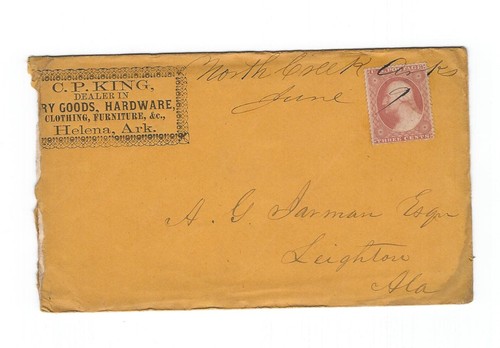 C. P. KING,
DEALER IN
RY GOODS, HARDWARE,
CLOTHING, FURNITURE, &c.,
Helena, Ark.
North Creek Arks
June 9
THREE CENTS
A. G. Jarman Esqr
Leighton
Ala